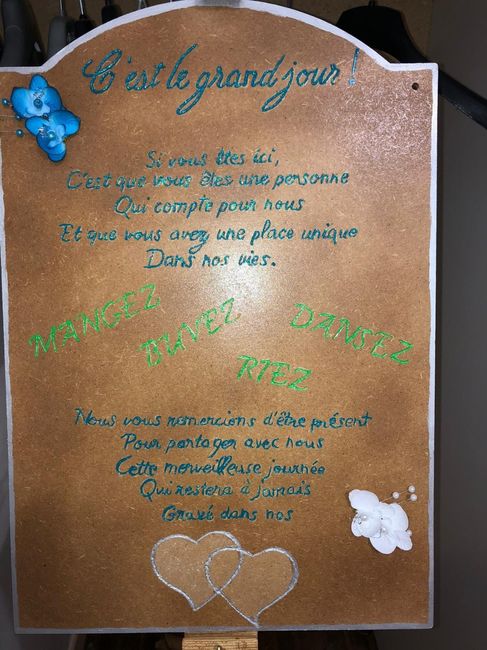 C'est le grand jour !
Si vous êtes ici,
C'est que vous êtes une personne
Qui compte pour nous
Et que vous avez une place unique
Dans nos vies.
MANGEZ
BUVEZ
DANSEZ
RIEZ
Nous vous remercions d'être présent
Pour partager avec nous
Cette merveilleuse journée
Qui restera à jamais
Gravé dans nos